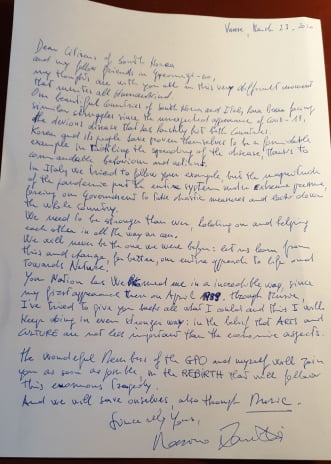 Varese, March 23, 2020
Dear Citizens of South Korea
and my fellow friends in Gyeonggi-do,
my thoughts are with you all in this very difficult moment
that unites all humankind.
Our beautiful Countries of South Korea and Italy, have been facing
similar struggles since the unexpected appearance of Covid-19,
the devious disease that has harshly hit both Countries.
Korea and its people have proven themselves to be a formidable
example in the spreading of the disease, thanks to
commendable behaviour and actions.
In Italy we tried to follow your example, but the magnitude
of the pandemic put the entire system under extreme pressure,
forcing our Government to take drastic measures and lock down
the whole Country.
We need to be stronger than ever, holding on and helping
each other in all the ways we can.
We will never be the one we were before: let us learn from
this and change, for better, our entire approach to life and
towards Nature.
Your Nation has welcomed me in a incredible way, since
my first appearance there on April 1989, through Music,
I've tried to give you back all what I could and this I will
keep doing in even stronger way: in the belief that ARTS and
CULTURE are not less important than the economic aspects.
The wonderful Members of the GPO and myself will join
you as soon as possible, in the REBIRTH that will follow
this enormous tragedy.
And we will save ourselves also through Music.
Sincerely Yours,